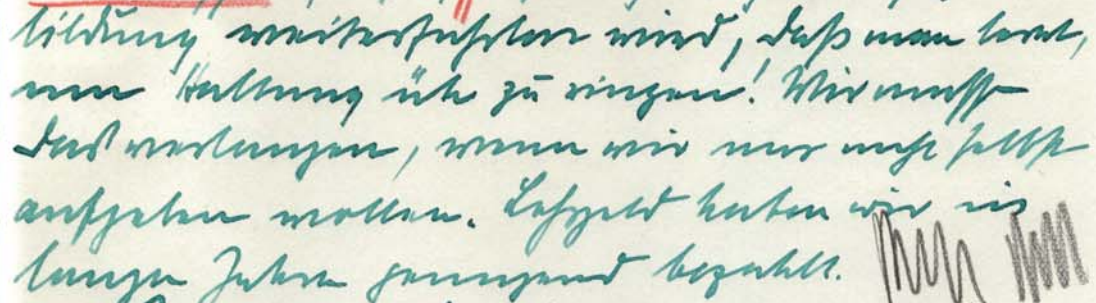 bildung weiterführen wird, daß man lernt,
um Haltung zu ringen! Wir müssen
das verlangen, wenn wir uns nicht selbst
aufgeben wollen. Lehrgeld haben wir in
langen Jahren genügend bezahlt.